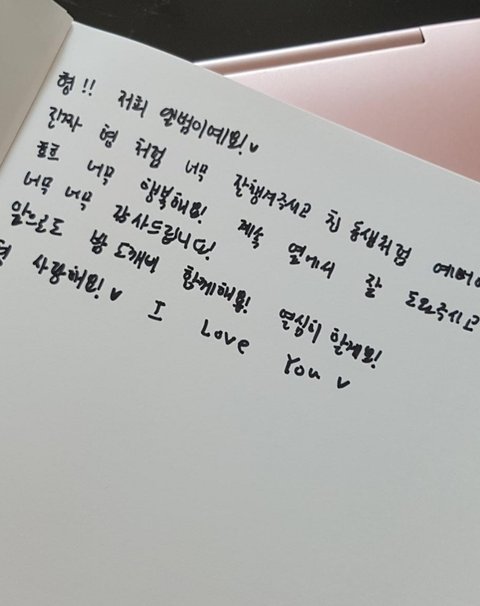 형!! 저희 앨범이에요!♥
진짜 형 처럼 너무 잘챙겨주시고 친 동생처럼
너무 행복해요! 계속 옆에서 잘 도와주시고
너무 너무 감사드립니다!
앞으로도 쌈 도개비 함께해용! 열심히 할게요!
형 사랑해요!♥ I Love You ♥